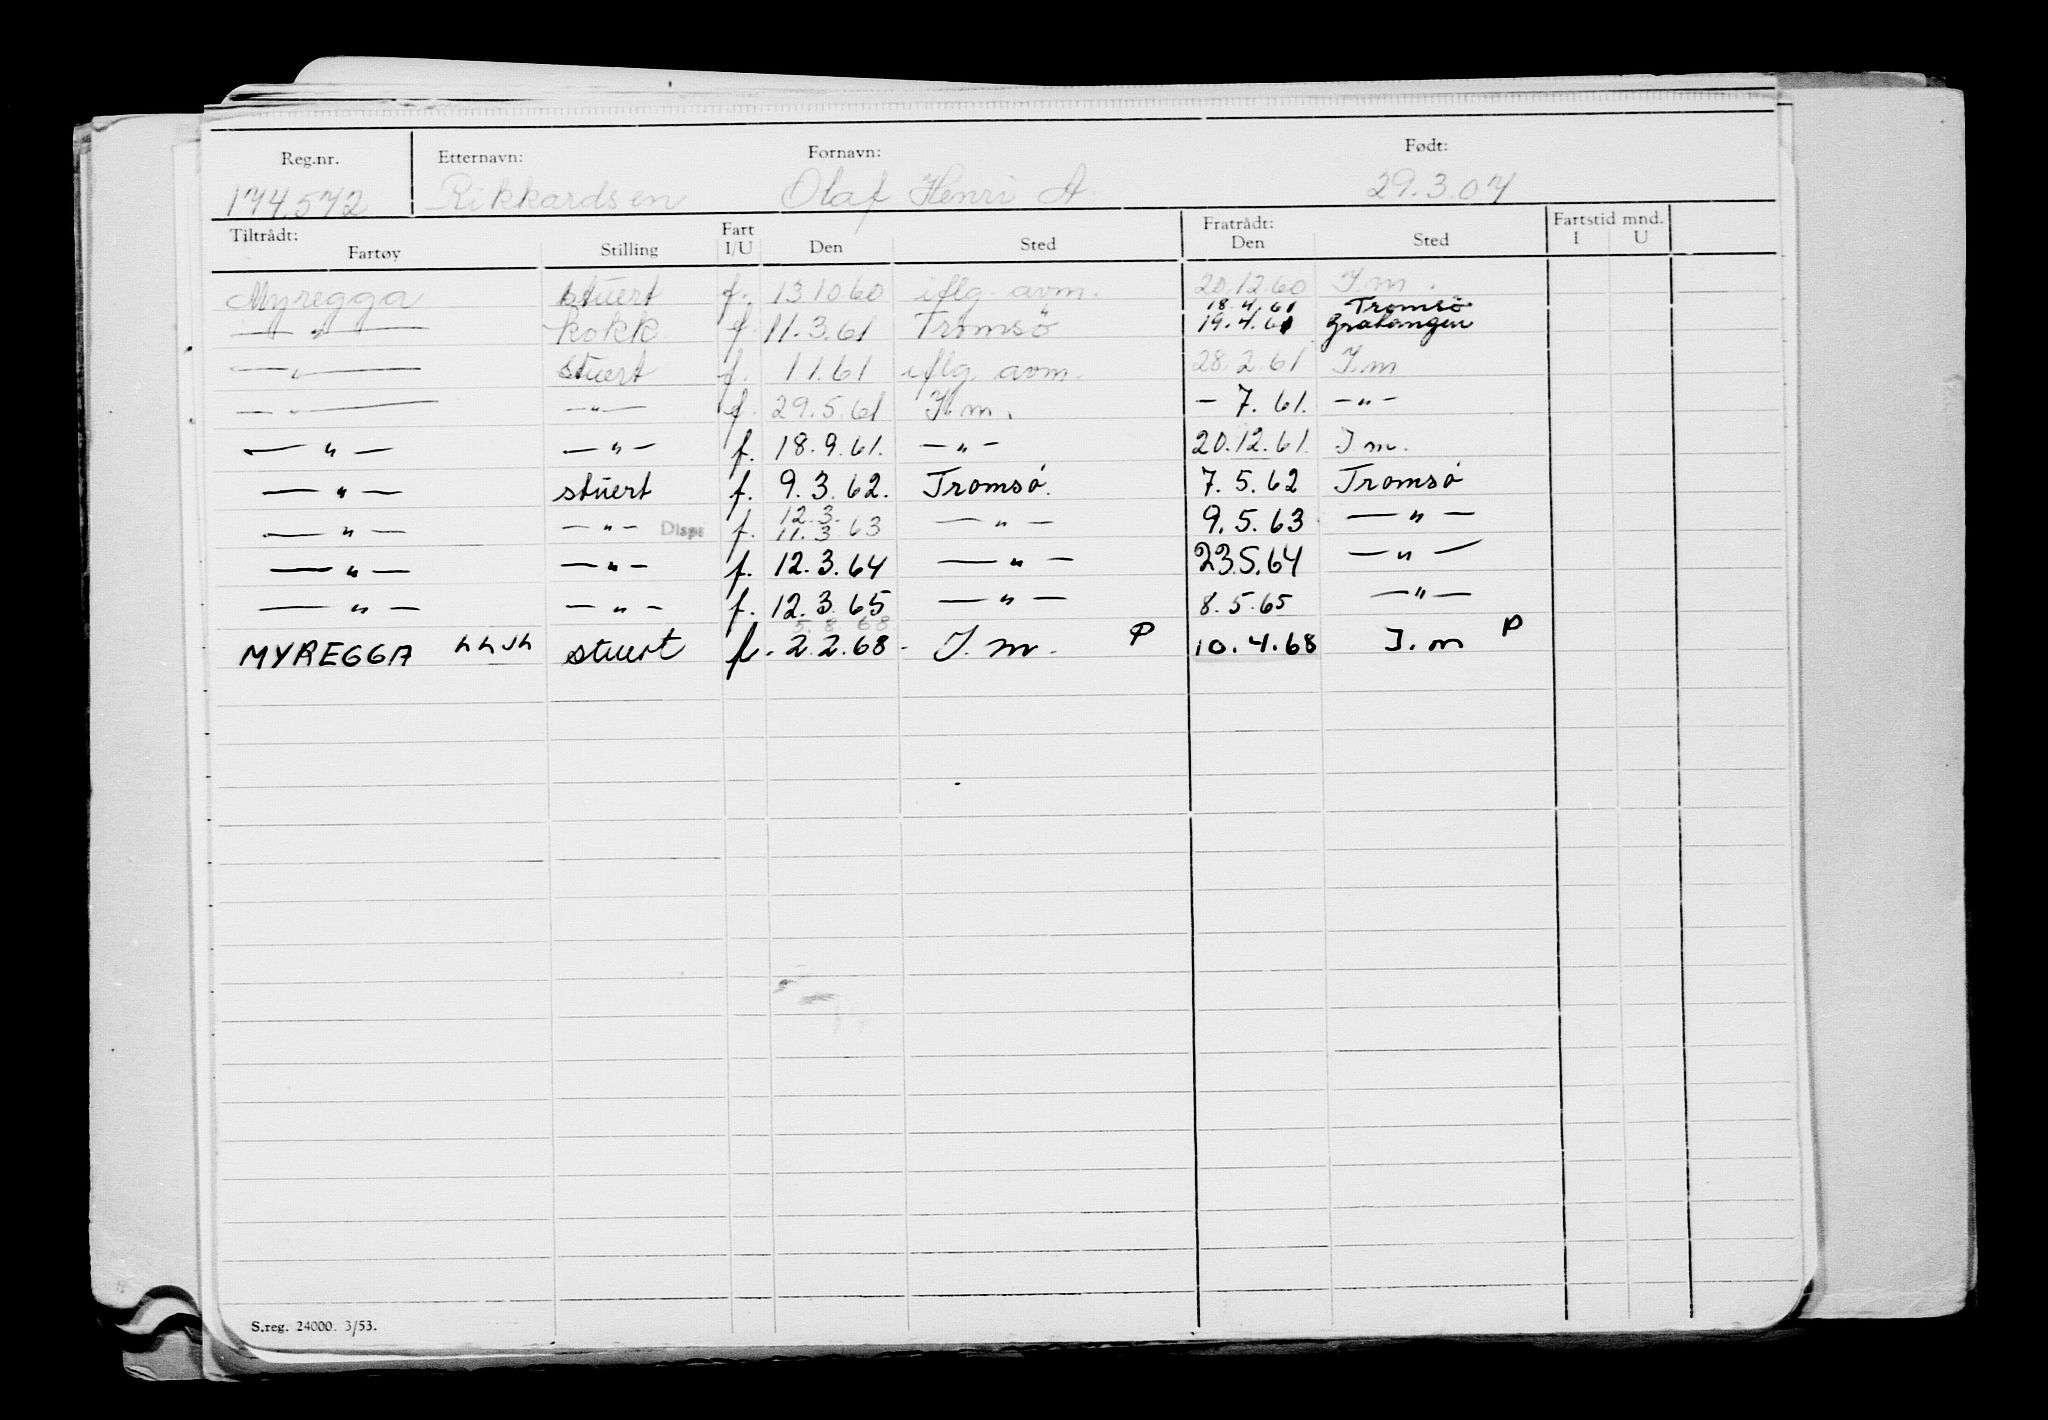 Reg.nr. Etternavn: Fornavn: Født:
174.572 Rikkardsen Olaf Henri A. 29.3.07
Tiltrådt: Fart Fratrådt: Fartstid mnd.
Fartøy Stilling I/U Den Sted Den Sted I U
Myregga stuert f. 13.10 60 iflg. avm. 20.12.60 I.m.
18.4.61 Tromsø
— " — kokk f. 11.3.61 Tromsö 19.4.61 Gratangen
— " — stuert f. 1 1.61 iflg. avm. 28.2.61 I.m
— " — — " — f. 29.5.61 I.m. - 7.61. — " —
— " — — " — f. 18.9.61. — " — 20.12.61. I m.
— " — stuert f. 9.3.62. Tromsø. 7.5.62 Tromsø
12.3.
— " — — " — Disp: f. 11.3 63 — " — 9.5.63 — " —
— " — — " — f. 12.3.64 — " — 23.5.64 — " —
— " — — " — f. 12.3.65 — " — 8.5.65 — " —
5.8 68
MYREGGA stuert f. 2.2.68. I.m. P 10.4.68 I.m P
S.reg. 24000. 3/53.